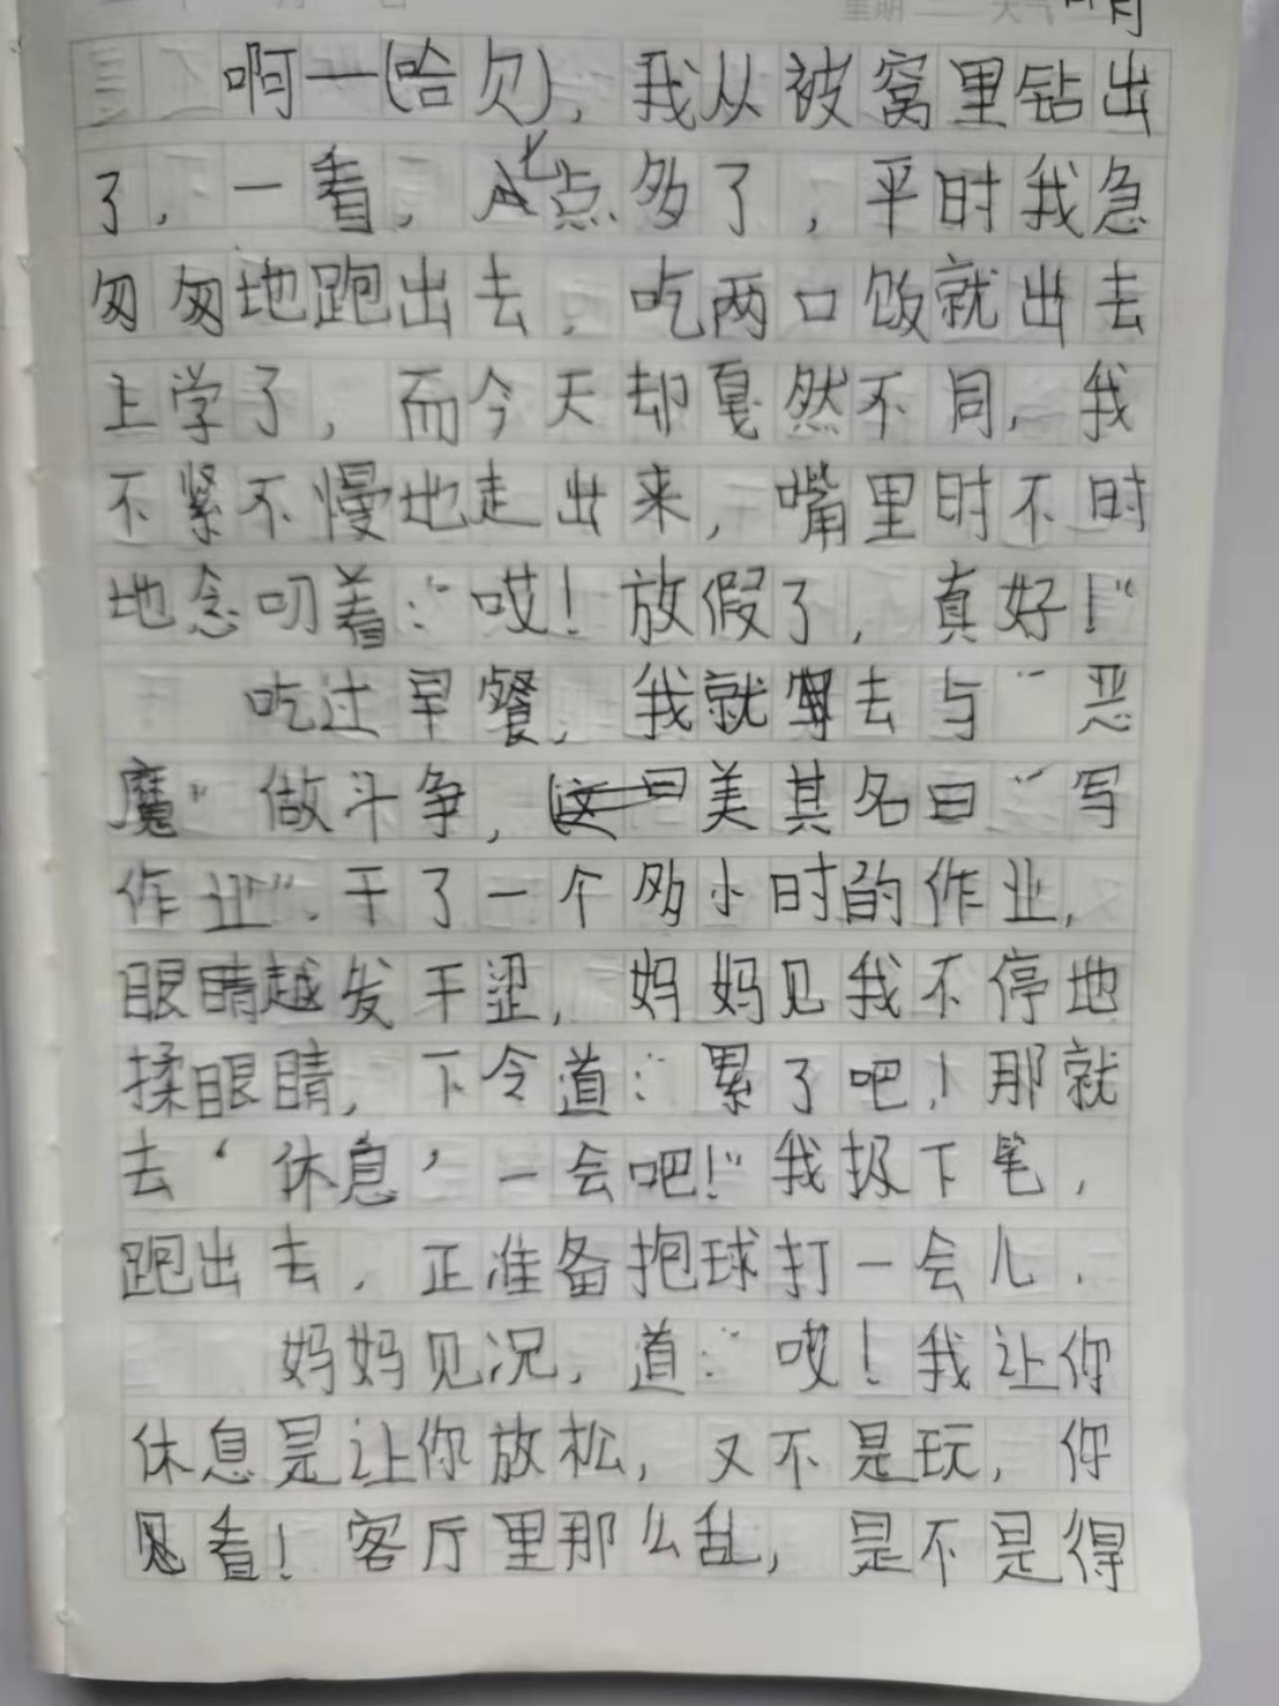 星期 天气 晴
啊一(哈欠),我从被窝里钻出
了,一看,七点多了,平时我急
匆匆地跑出去,吃两口饭就出去
上学了,而今天却戛然不同,我
不紧不慢地走出来,嘴里时不时
地念叨着:“哎!放假了,真好!”
吃过早餐,我就去与“恶
魔”做斗争,美其名曰“写
作业”。干了一个多小时的作业,
眼睛越发干涩,妈妈见我不停地
揉眼睛,下令道:“累了吧!那就
去‘休息’一会吧!”我扔下笔,
跑出去,正准备抱球打一会儿.
妈妈见况,道:“哎!我让你
休息是让你放松,又不是玩,你
看!客厅里那么乱,是不是得